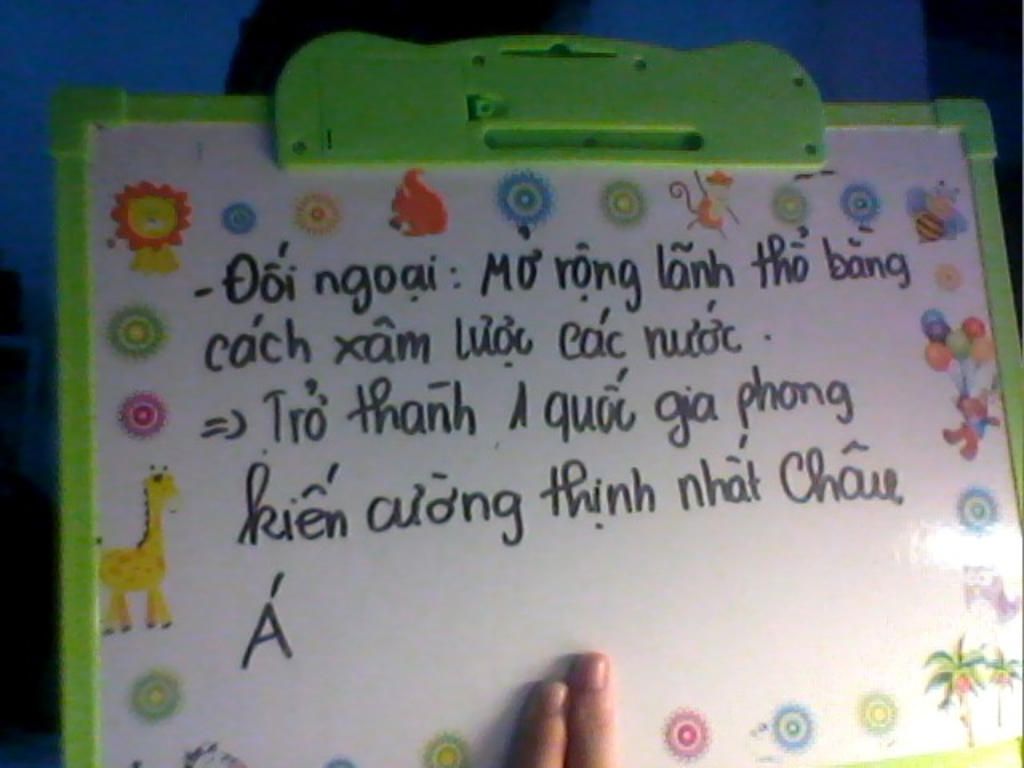 - Đối ngoại: Mở rộng lãnh thổ bằng
cách xâm lược các nước.
=> Trở thành 1 quốc gia phong
kiến cường thịnh nhất Châu
Á